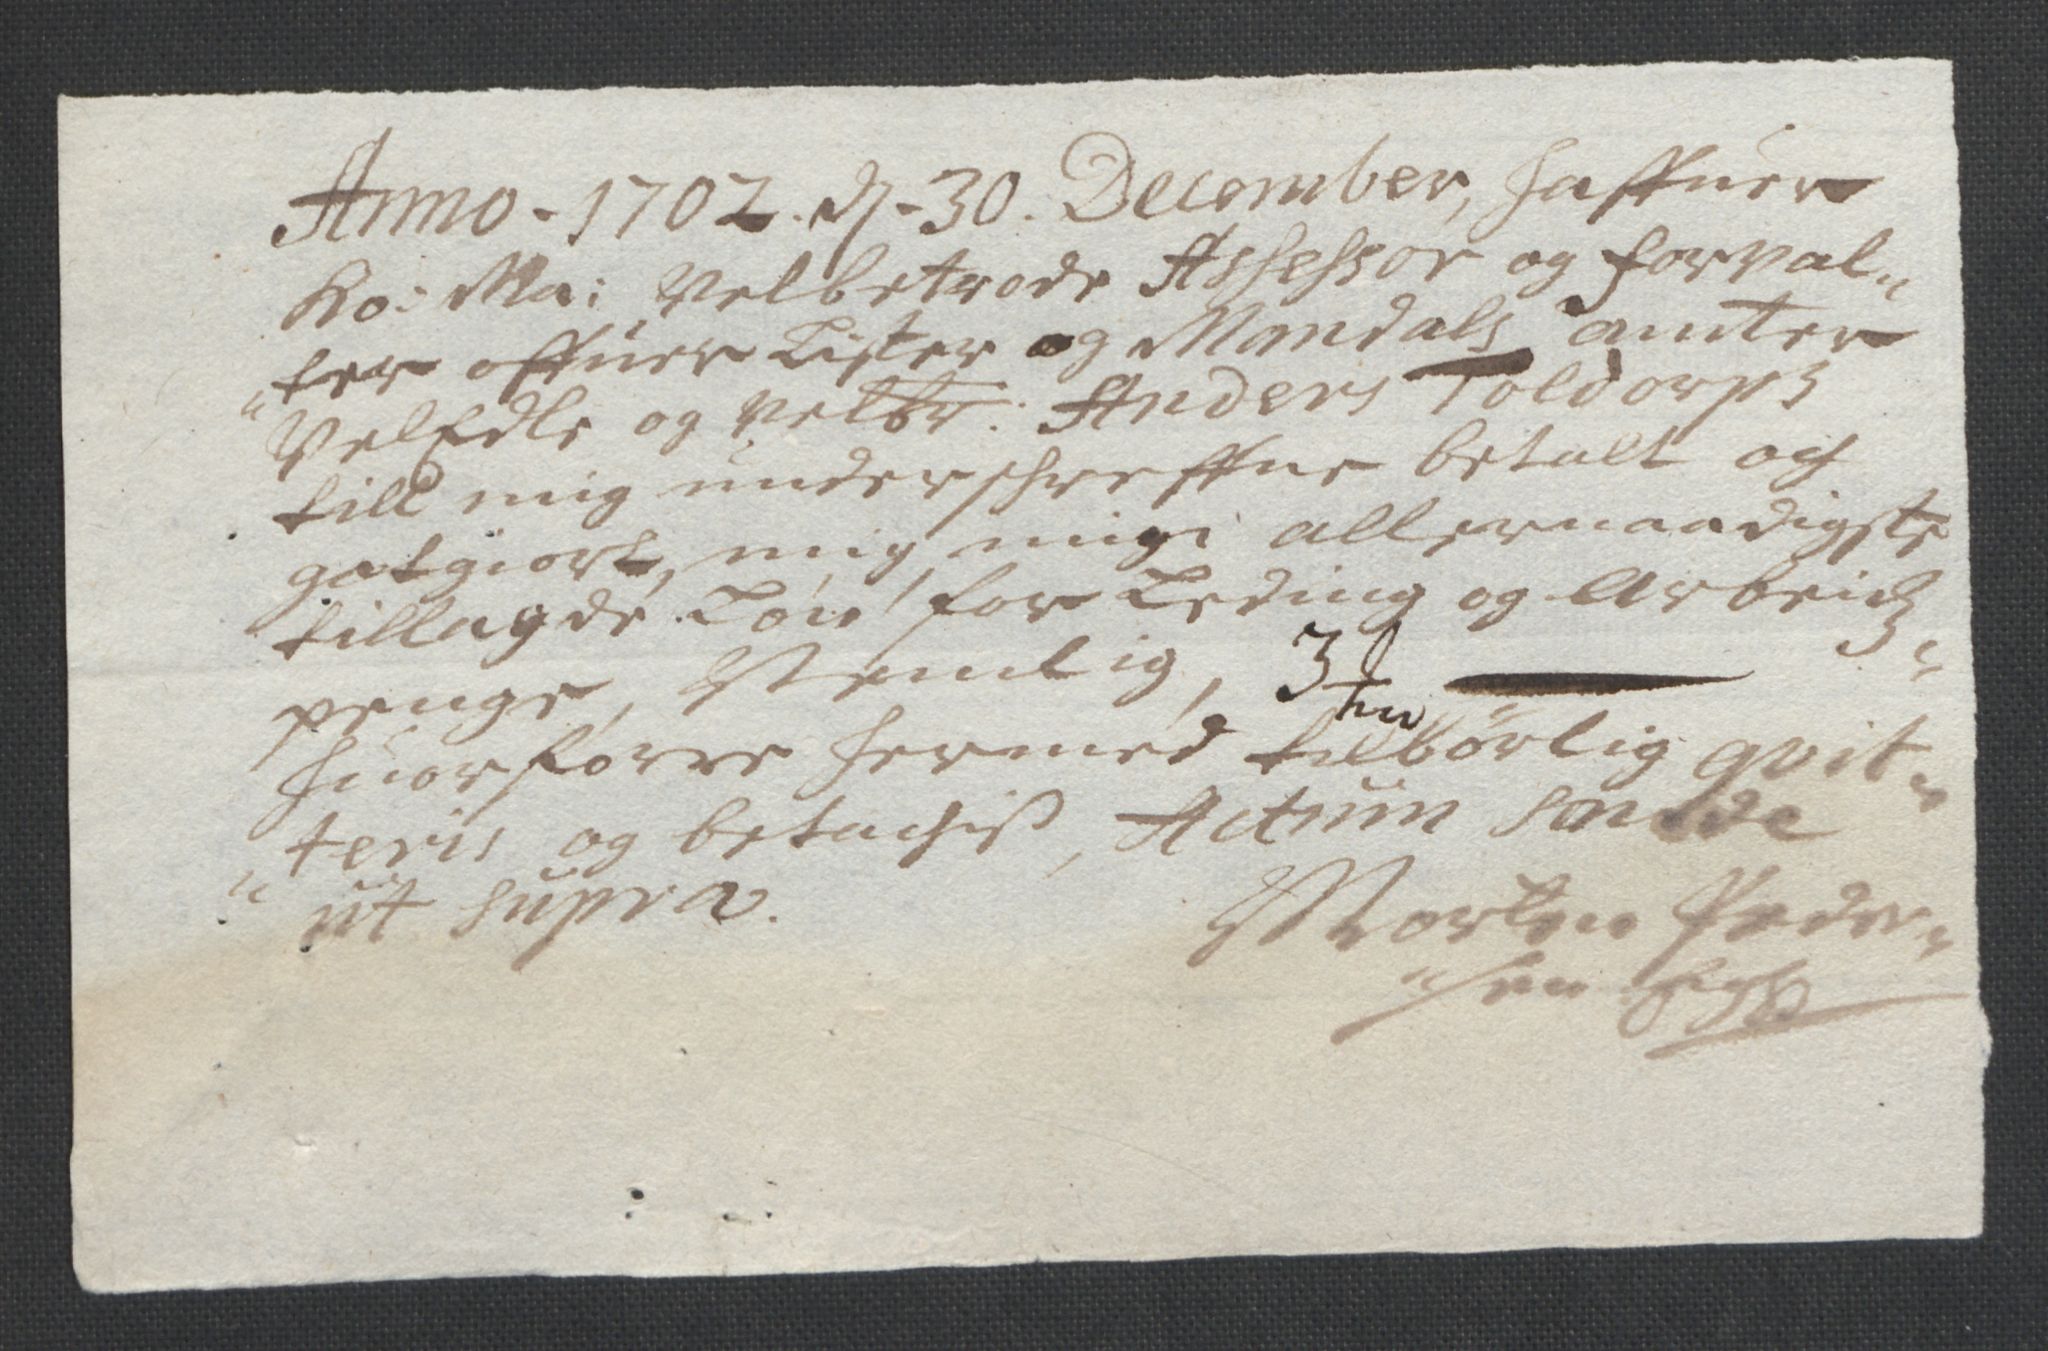 Anno - 1702. d - 30. December, haffuer
Ko: Ma: Velbetrode Assessor og forval„
„ter offuer Lister og Mandals amter
VelEdle og velbr: Anders Toldorph
till mig underschreffne betalt og
gotgiort, mig, allernaadigste
tillagde Løn for Leding og Arbeidtz„
penge, Nemlig, 3
huorforre hermed tilbørlig qvit„
„teris og betachis, Actum
ut supra.
Morten Peder„
„sen